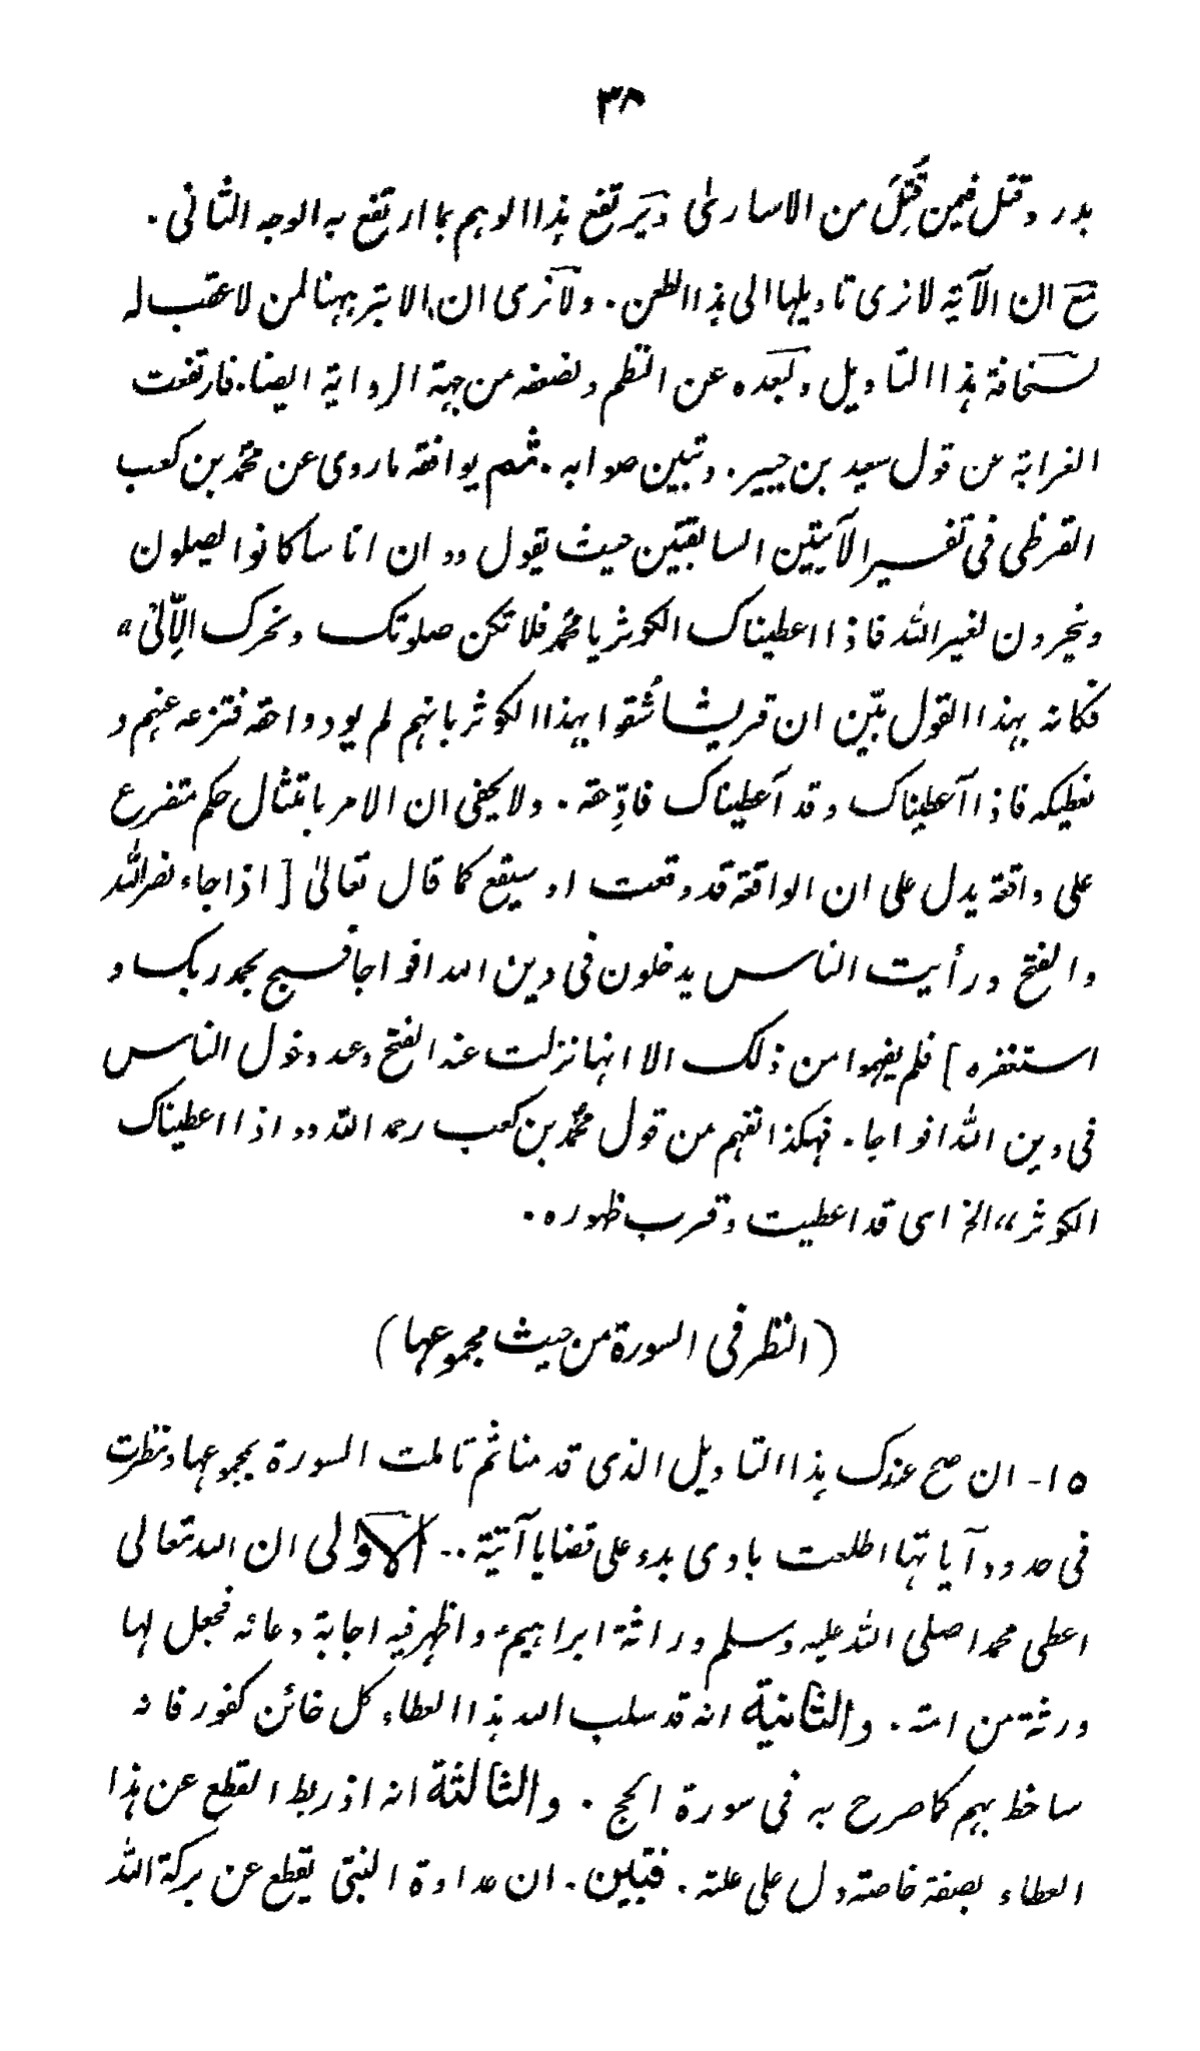 ٣٨
بدر وقتل فيمن قُتِلَ من الاسارىٰ ويرتفع هذا الوهم بما ارتفع به الوجه الثانى.
مع ان الآية لا نرى تاويلها الى هذا الطعن. ولا نرى ان الابتر ههنا لمن لا عقب له
لسخافة هذا التاويل ولبعده عن النظم ولضعفه من جهة الرواية ايضا. فارتفعت
الغرابة من قول سعيد بن جبير. وتبين صوابه. ثم يوافقه ما روى عن محمد بن كعب
القرظى فى تفسير الآيتين السابقتين حيث يقول ،، ان اناسا كانوا يصلون
وينحرون لغير الله فاذا اعطيناك الكوثر يا محمد فلا تكن صلوتك ونحرك اِلّا لىْ "
فكانه بهذا القول بيّن ان قريشا شُقوا بهذا الكوثر بانهم لم يودوا حقه فننزعه عنهم و
نعطيكه فاذا آعطيناك وقد آعطيناك فادِّ حقه. ولا يخفى ان الامر بامتثال حكم متفرع
على واقعة يدل على ان الواقعة قد وقعت او سيقع كما قال تعالىٰ [ اذا جاء نصر الله
والفتح ورأيت الناس يدخلون فى دين الله افواجا فسبح بحمد ربك و
استغفره ] فلم يفهموا من ذلك الا انها نزلت عند الفتح وعند دخول الناس
فى دين الله افواجا. فهكذا نفهم من قول محمد بن كعب رحمه الله ،، اذا اعطيناك
الكوثر ،، الخ اى قد اعطيت وقرب ظهوره.
(النظر فى السورة من حيث مجموعها)
١٥- ان صح عندك هذا التاويل الذى قدمنا ثم تاملت السورة بمجموعها ونظرت
فى حدود آياتها اطلعت بادى بدء على قضايا آتية.. الاولى ان الله تعالى
اعطى محمدا صلى الله عليه وسلم وراثة ابراهيمؑ واظهر فيه اجابة دعائه فجعل لها
ورثة من امته. والثانية انه قد سلب الله هذا العطاء كل خائن كفور فانه
ساخط بهم كما صرح به فى سورة الحج. والثالثة انه اذ ربط القطع عن هذا
العطاء بصفة خاصة دل على علته. فتبين. ان عداوة النبى يقطع عن بركة الله